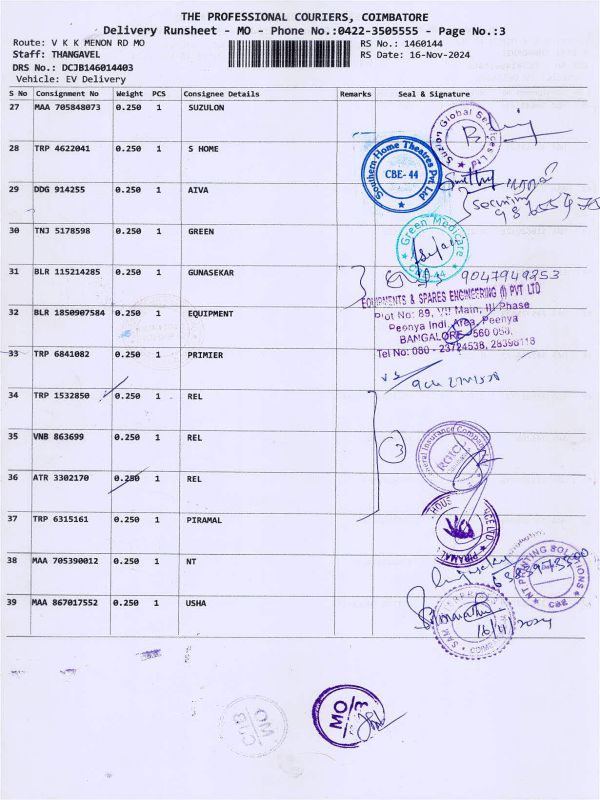 THE PROFESSIONAL COURIERS, COIMBATORE
Delivery Runsheet - MO - Phone No.:0422-3505555 - Page No.:3
Route: V K K MENON RD MO
RS No.: 1460144
Staff: THANGAVEL
RS Date: 16-Nov-2024
DRS No.: DCJB146014403
Vehicle: EV Delivery
S No Consignment No Weight PCS Consignee Details Remarks Seal & Signature
27 MAA 705848073 0.250 1 SUZULON
Suzlon Global Services Ltd
28 TRP 4622041 0.250 1 S HOME
Southern Home Theatres Pvt Ltd
CBE- 44
29 DDG 914255 0.250 1 AIVA
30 TNJ 5178598 0.250 1 GREEN
Green Medicare
31 BLR 115214285 0.250 1 GUNASEKAR
9047949253
EQUIPMENTS & SPARES ENGINEERING (I) PVT LTD
32 BLR 1850907584 0.250 1 EQUIPMENT
Plot No: 89, VII Main, III Phase
Peenya Indl. Area, Peenya
BANGALORE - 560 058,
33 TRP 6841082 0.250 1 PRIMIER
Tel No: 080 - 23724538, 28398118
34 TRP 1532850 0.250 1 REL
35 VNB 863699 0.250 1 REL
3
General Insurance Company
RGICL
36 ATR 3302170 0.250 1 REL
37 TRP 6315161 0.250 1 PIRAMAL
PIRAMAL
38 MAA 705390012 0.250 1 NT
NT PRINTING SOLUTIONS
CBE
39 MAA 867017552 0.250 1 USHA
16/11/2024
MO/3
CJB
MO